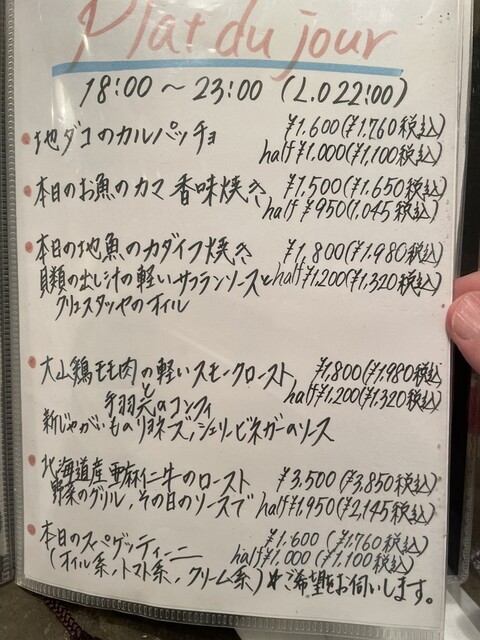 Plat du jour
18:00 ~ 23:00 (L.O 22:00)
地ダコのカルパッチョ ¥1,600(¥1,760税込)
half ¥1,000(¥1,100税込)
本日のお魚のカマ 香味焼き ¥1,500(¥1,650税込)
half ¥950(1,045税込)
本日の地魚のカダイフ焼き ¥1,800(¥1,980税込)
貝類の出し汁の軽いサフランソースと half ¥1,200(¥1,320税込)
クリュスタッセのオイル
大山鶏モモ肉の軽いスモークロースト ¥1,800(¥1,980税込)
と half ¥1,200(¥1,320税込)
手羽元のコンフィ
新じゃがいものリヨネーズ,シェリービネガーのソース
北海道産亜麻仁牛のロースト ¥3,500(¥3,850税込)
野菜のグリル,その日のソースで half ¥1,950(¥2,145税込)
本日のスパゲッティーニ ¥1,600(¥1,760税込)
half ¥1,000(¥1,100税込)
(オイル系,トマト系,クリーム系)※ご希望をお伺いします。